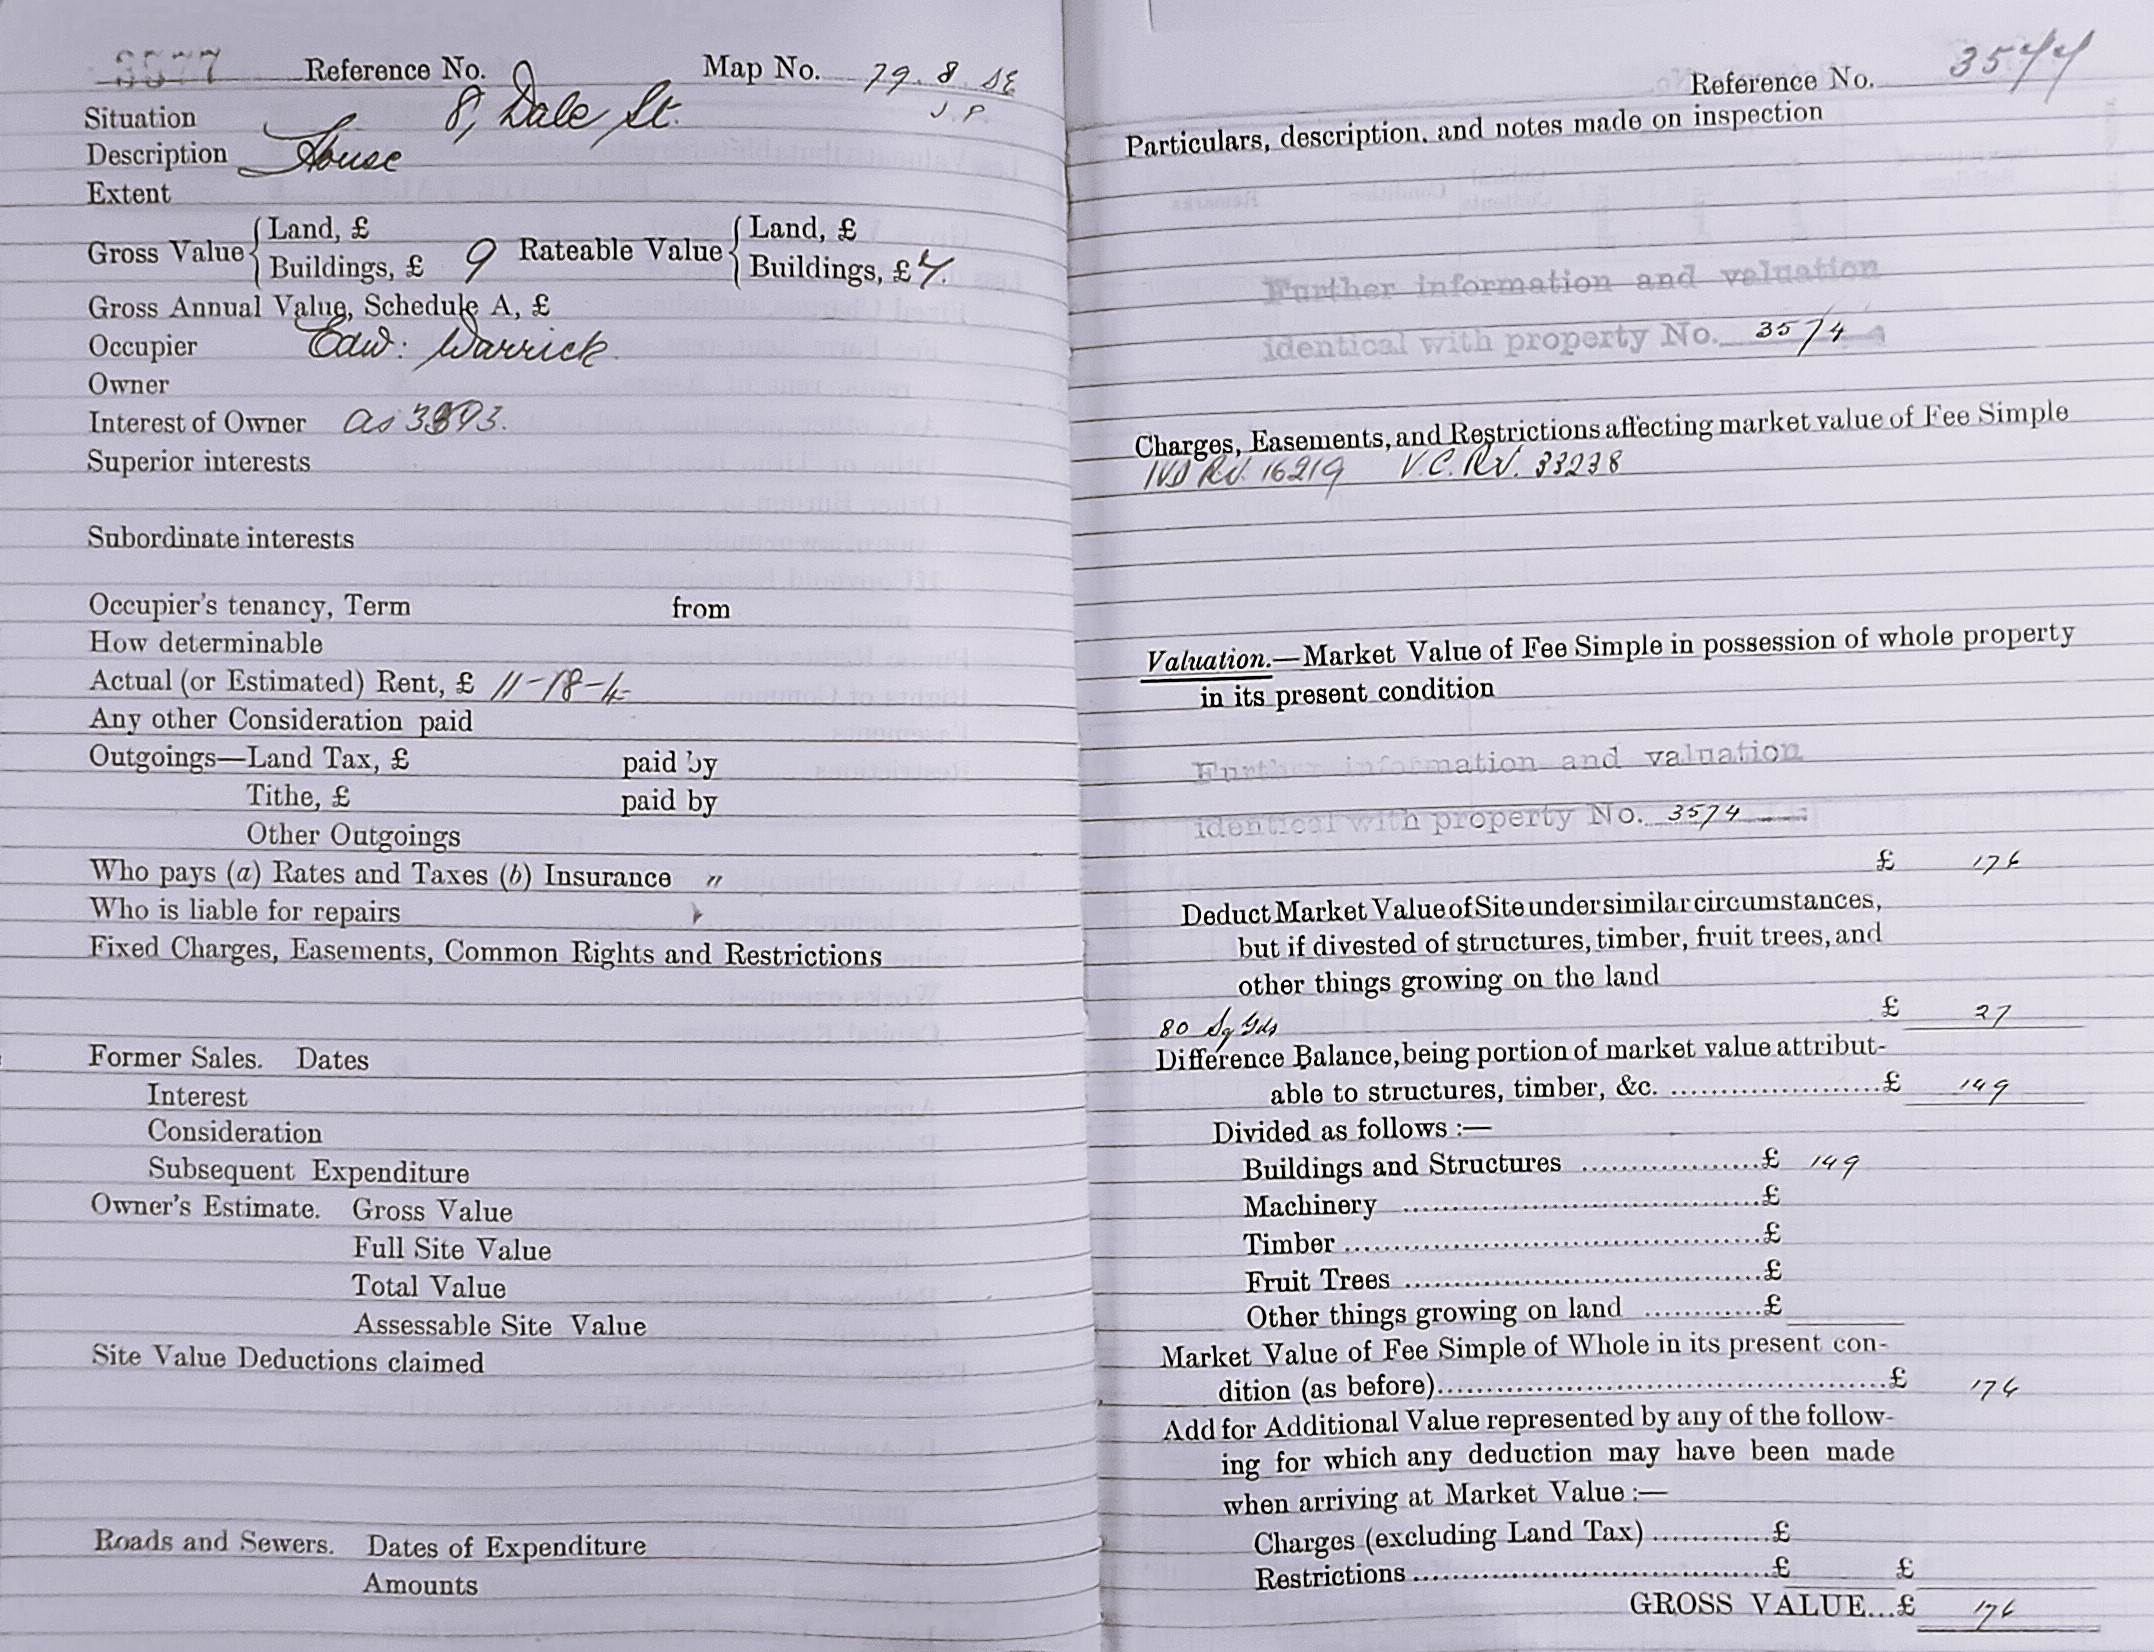 3577 Reference No. Map No. 79. 8 SE
J. P.
Situation 8, Dale St.
Description House
Extent
Gross Value { Land, £ Rateable Value { Land, £
Buildings, £ 9 Buildings, £ 7.
Gross Annual Value, Schedule A, £
Occupier Edw: Warrick.
Owner
Interest of Owner as
Superior interests
Subordinate interests
Occupier's tenancy, Term from
How determinable
Actual (or Estimated) Rent, £ 11-18-4
Any other Consideration paid
Outgoings—Land Tax, £ paid by
Tithe, £ paid by
Other Outgoings
Who pays (a) Rates and Taxes (b) Insurance "
Who is liable for repairs
Fixed Charges, Easements, Common Rights and Restrictions
Former Sales. Dates
Interest
Consideration
Subsequent Expenditure
Owner's Estimate. Gross Value
Full Site Value
Total Value
Assessable Site Value
Site Value Deductions claimed
Roads and Sewers. Dates of Expenditure
Amounts
Reference No. 3577
Particulars, description. and notes made on inspection
Further information and valuation
identical with property No. 3574
Charges, Easements, and Restrictions affecting market value of Fee Simple
IVD R.V. 16219 V.C. R.V. 33238
Valuation.—Market Value of Fee Simple in possession of whole property
in its present condition
Further information and valuation
identical with property No. 3574
£ 176
Deduct Market Value of Site under similar circumstances,
but if divested of structures, timber, fruit trees, and
other things growing on the land
£ 27
80 Sq Yds
Difference Balance, being portion of market value attribut-
able to structures, timber, &c. ....................£ 149
Divided as follows :—
Buildings and Structures .................£ 149
Machinery ..................................£
Timber ......................................£
Fruit Trees .................................£
Other things growing on land ...........£
Market Value of Fee Simple of Whole in its present con-
dition (as before)..........................................£ 176
Add for Additional Value represented by any of the follow-
ing for which any deduction may have been made
when arriving at Market Value :—
Charges (excluding Land Tax) ...........£
Restrictions ...................................£ £
GROSS VALUE...£ 176